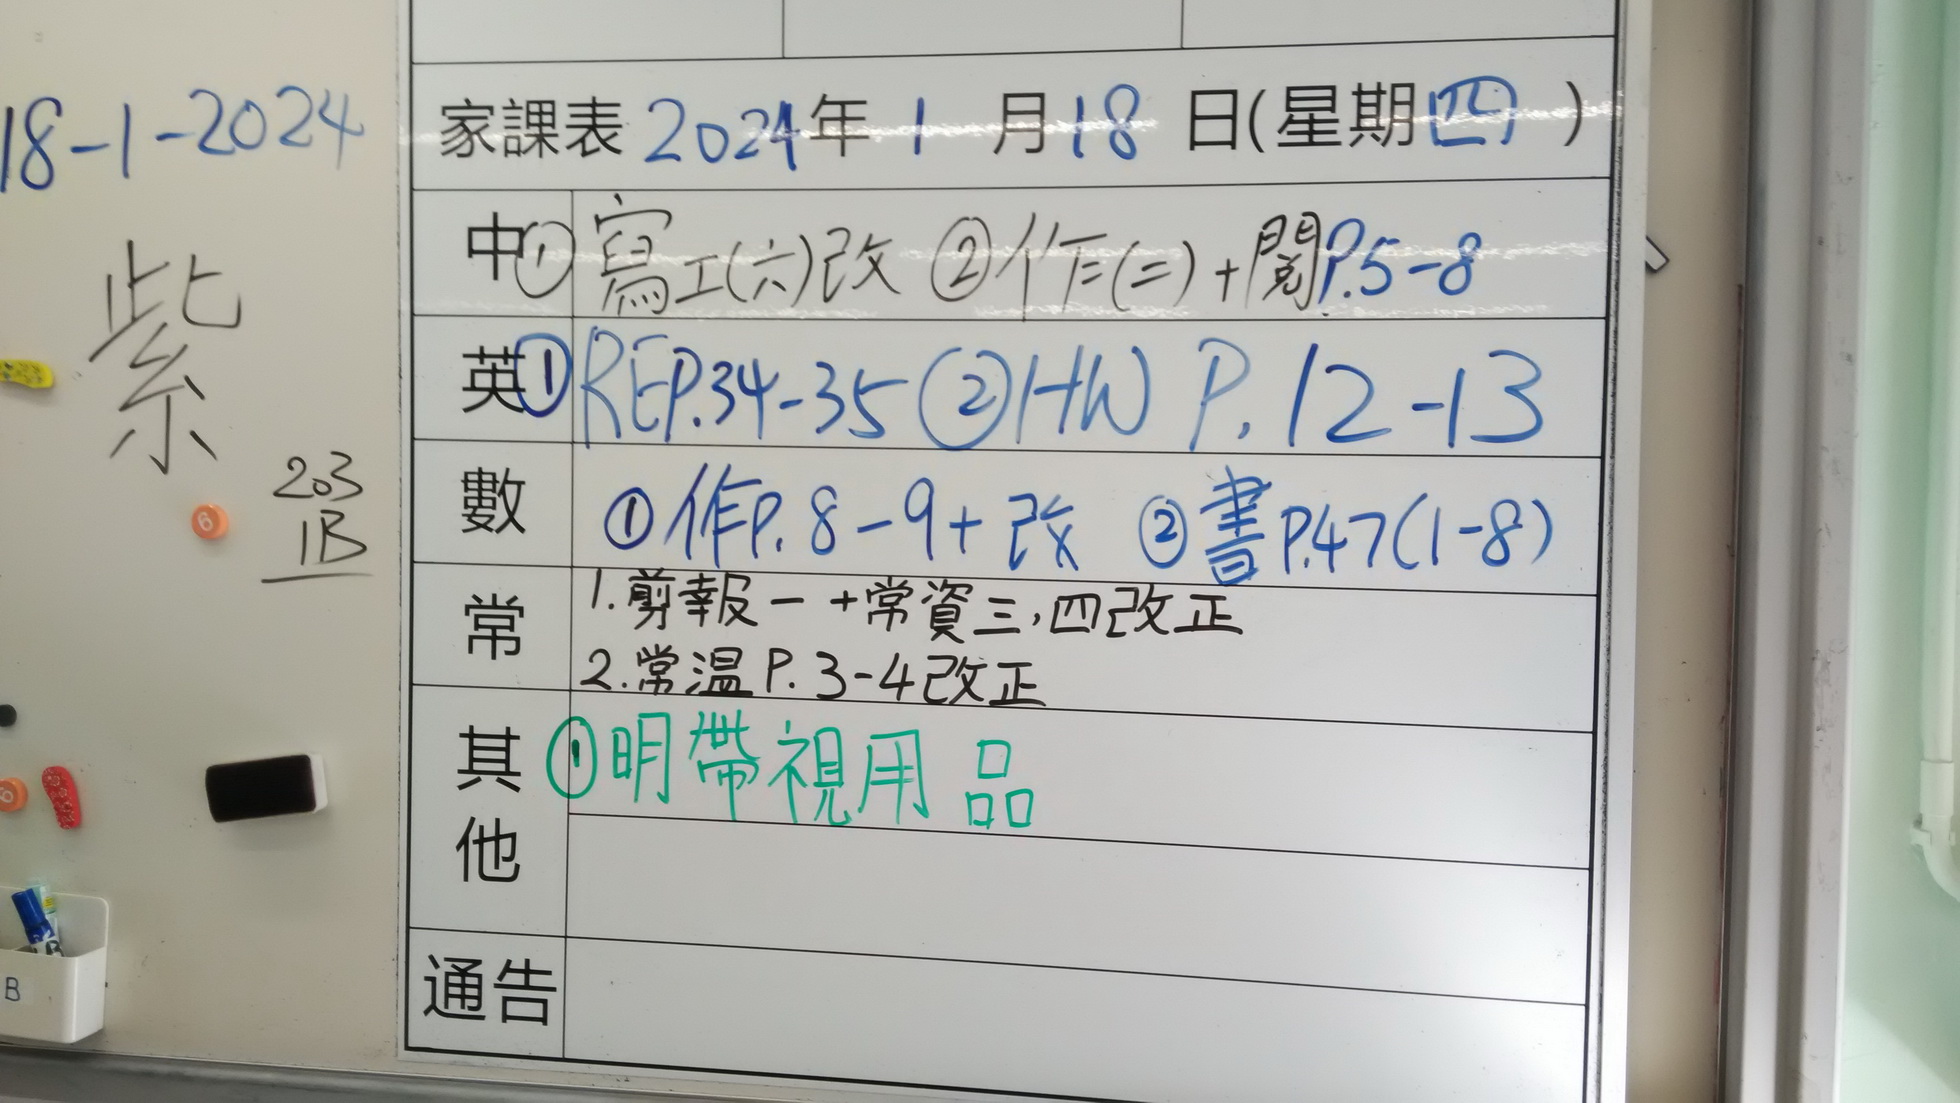 18-1-2024
紫
203
1B
6
6
B
家課表 2024年 1 月 18 日(星期四)
中 ① 寫工(六)改 ② 作(二)+閱P.5-8
英 ① RE P.34-35 ② HW P.12-13
數 ① 作P.8-9+改 ② 書P.47(1-8)
常 1.剪報一+常資三,四改正
2.常溫P.3-4改正
其他 ① 明帶視用品
通告